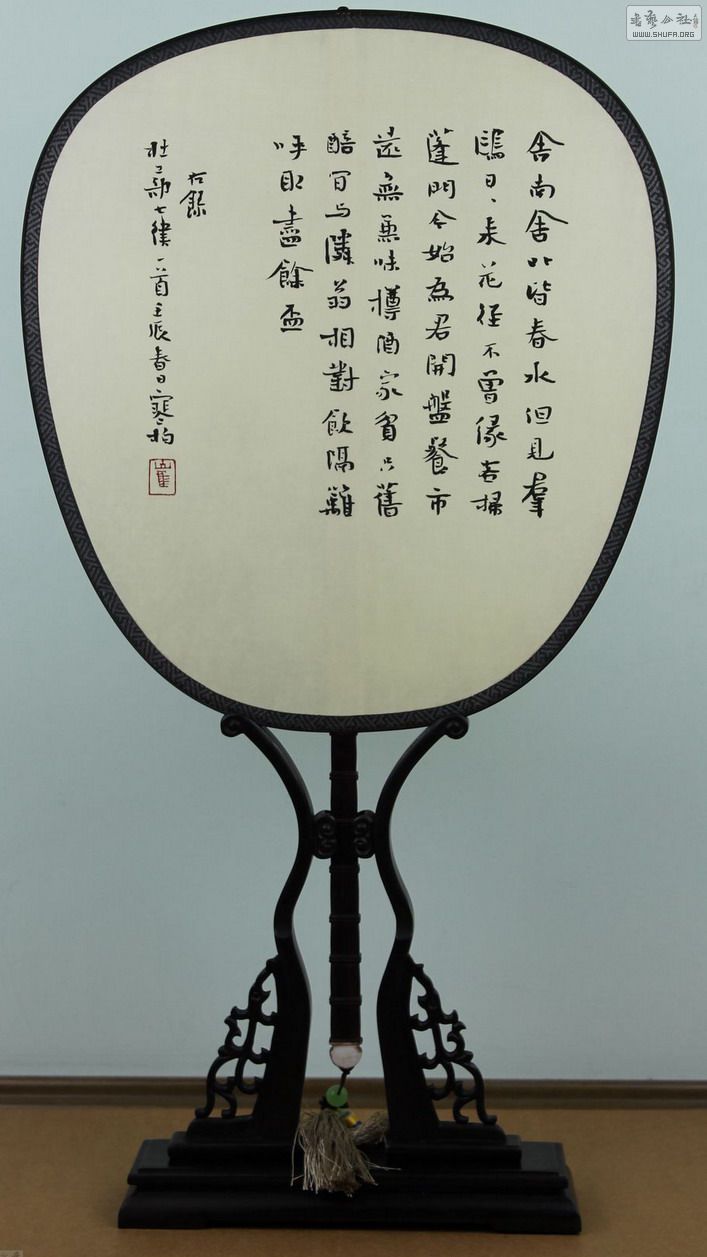 舍南舍北皆春水但見羣
鷗日、来花径不曾緣客掃
蓬門今始為君開盤餐市
遠無兼味樽酒家貧只舊
醅肯与隣翁相對飲隔籬
呼取盡餘盃
右錄
杜工部七律一首壬辰春日
書藝公社
WWW.SHUFA.ORG